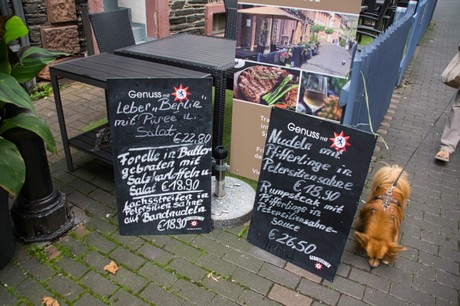 Genuss mit
Leber „Berlie"
mit Püree u.
Salat €22.80
Forelle in Butter
gebraten mit
Salzkartoffeln u.
Salat €18.90
Lachsstreifen in
Petersilien Sahne
auf Bandnudeln
€18.90
Genuss mit
Nudeln mit
Pfifferlinge in
Petersiliensahne
€18.90
Rumpsteak mit
Pfifferlinge in
Petersiliensahne
sauce
€26.50